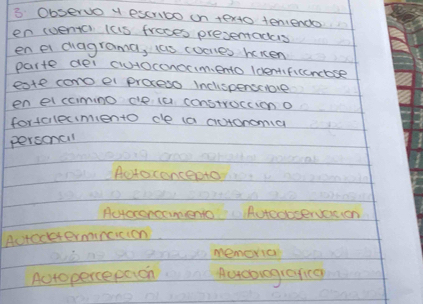 3. Observo y escribo un texto teniendo
en cuenta las fraces presentadas
en el diagrama, las cuales hacen
parte del autoconocimiento identificandose
este como el proceso indispensable
en el camino de la construccion o
fortalecimiento de la autonomia
personal
Autoconcepto
Autoconocimiento Autoobservacion
Autodeterminacion
memoria
Autopercepcion Autobiografica